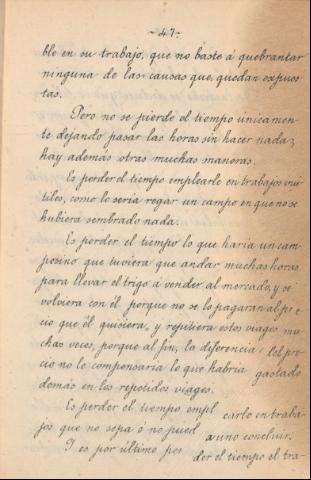 -47-
ble en su trabajo, que no baste á quebrantar
ninguna de las causas que quedan expues
tas.
Pero no se pierde el tiempo unicamen-
te dejando pasar las horas sin hacer nada;
hay además otras muchas maneras.
Es perder el tiempo emplearle en trabajos inú
tiles, como lo sería regar un campo en que no se
hubiera sembrado nada.
Es perder el tiempo lo que haria un cam-
pesino que tuviera que andar muchas horas
para llevar el trigo á vender al mercado, y se
volviera con él porque no se lo pagaran al pre
cio que él quisiera, y repitiera estos viages mu
chas veces, porque al fin, la diferencia del pre
cio no le compensaria lo que habría gastado
demás en los repetidos viages.
Es perder el tiempo empl earlo en traba-
jos que no sepa ó no pued a uno concluir.
I es por último per der el tiempo el tra-